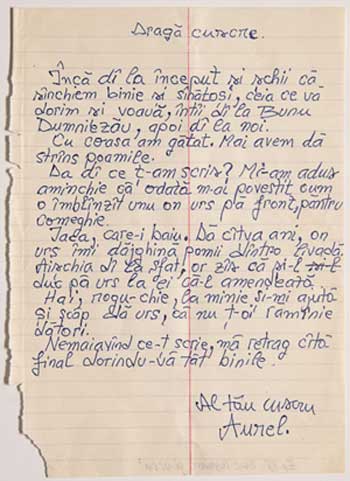 Dragă cuscre.
Încă dî la început să schii că
sînchiem binie și sînătoși, ceia ce vă
dorim și voauă, întîi dî la Bunu
Dumniezău, apoi dî la noi.
Cu coasa am gătat. Mai avem dă
strîns poamile.
Da di ce ț-am scris? Mi-am adus
aminchie că odată m-ai povestit cum
o îmblînzit unu on urs pă front, pântru
comeghie.
Iacă, care-i baiu. Dă cîtva ani, on
urs îmi dăjghină pomii dintro livadă.
Aișchia di la sfat, or zis că și-l
duc pă urs la iei că-l amendează.
Hai, rogu-chie, la minie, și-mi ajută
să scap dă urs, că nu ț-oi raminie
dători.
Nemaiavînd ce-ț scrie, mă retrag cătă
final dorindu-vă tăt binile.
Al tău cuscru
Aurel.